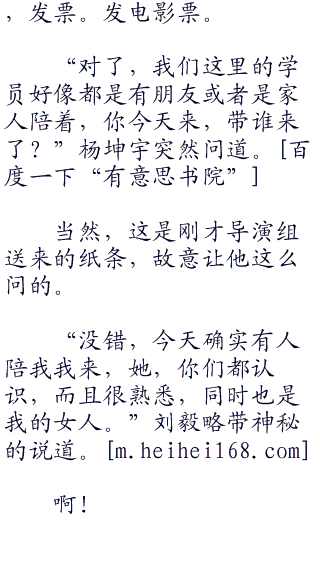 ，发票。发电影票。
“对了，我们这里的学
员好像都是有朋友或者是家
人陪着，你今天来，带谁来
了？”杨坤宇突然问道。[百
度一下“有意思书院”]
当然，这是刚才导演组
送来的纸条，故意让他这么
问的。
“没错，今天确实有人
陪我我来，她，你们都认
识，而且很熟悉，同时也是
我的女人。”刘毅略带神秘
的说道。[m.heihei168.com]
啊！